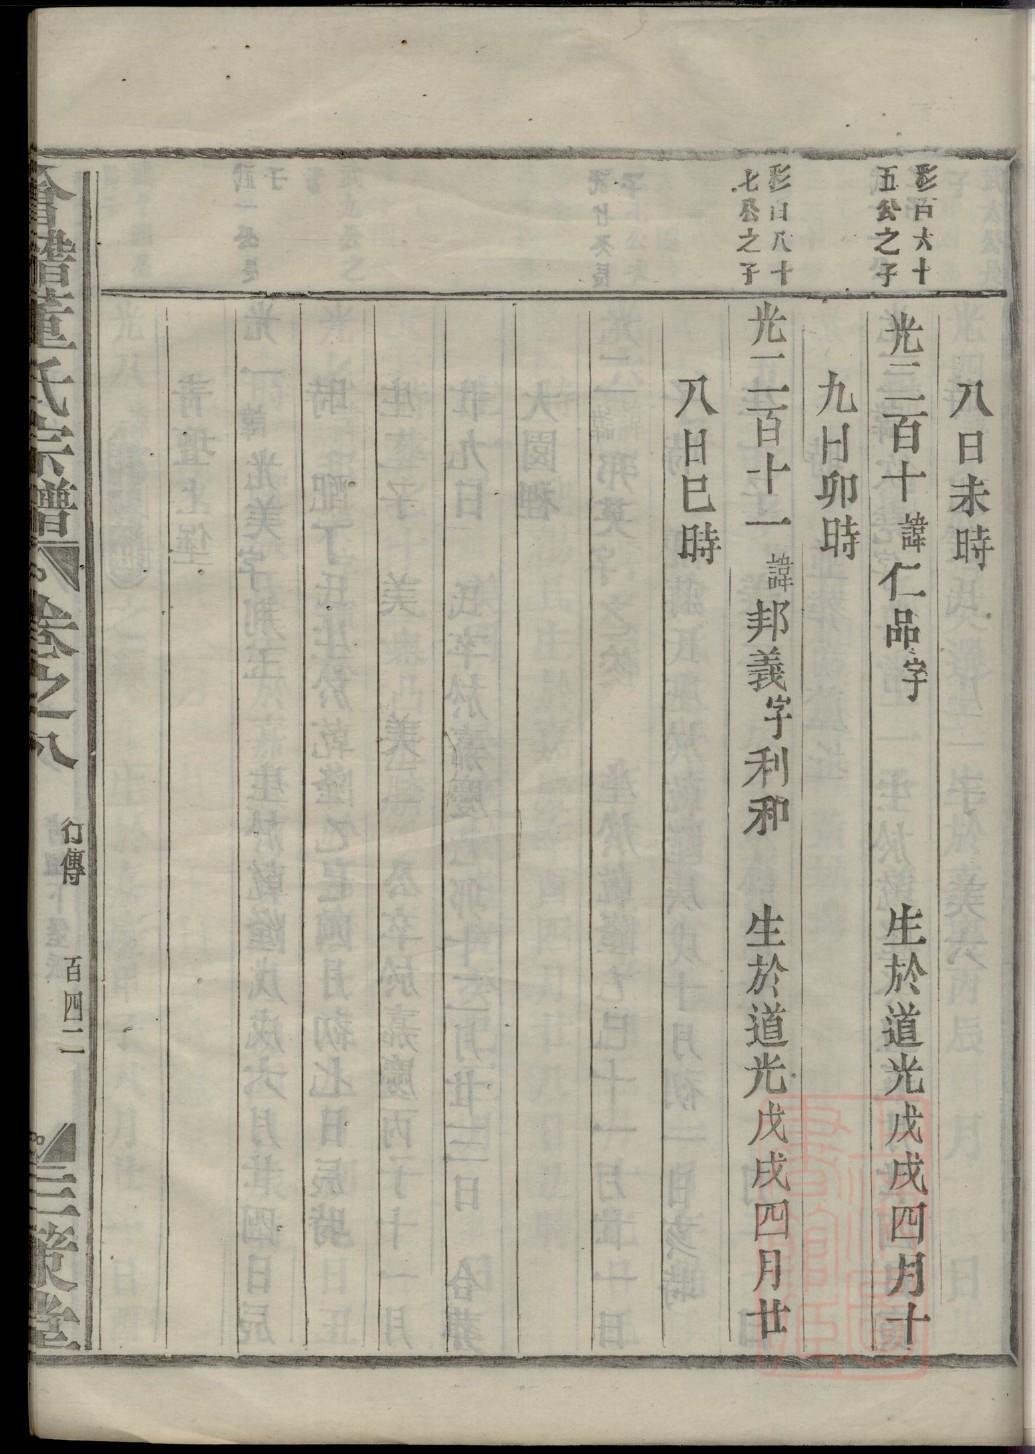 八日未時
彭百六十
五公之子
光二百十諱仁品字　生於道光戊戌四月十
九日卯時
彭百八十
七公之子
光二百十一諱邦義字利和　生於道光戊戌四月廿
八日巳時
董氏宗譜　卷之八　行傳　百四二　三策堂